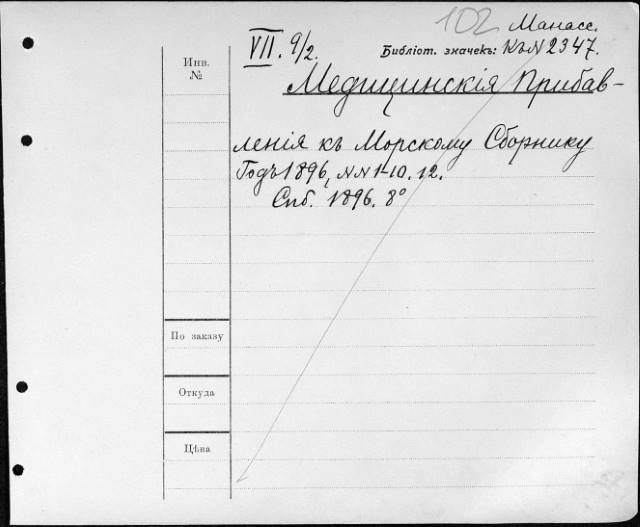 102 Манасс.
VII. 9/2. Библіот. значекъ: КъN 2347.
Инв.
№
Медицинскія Прибав-
ленія къ Морскому Сборнику
Годъ 1896, NN 1-10. 12.
Спб. 1896. 8°
По заказу
Откуда
Цѣна